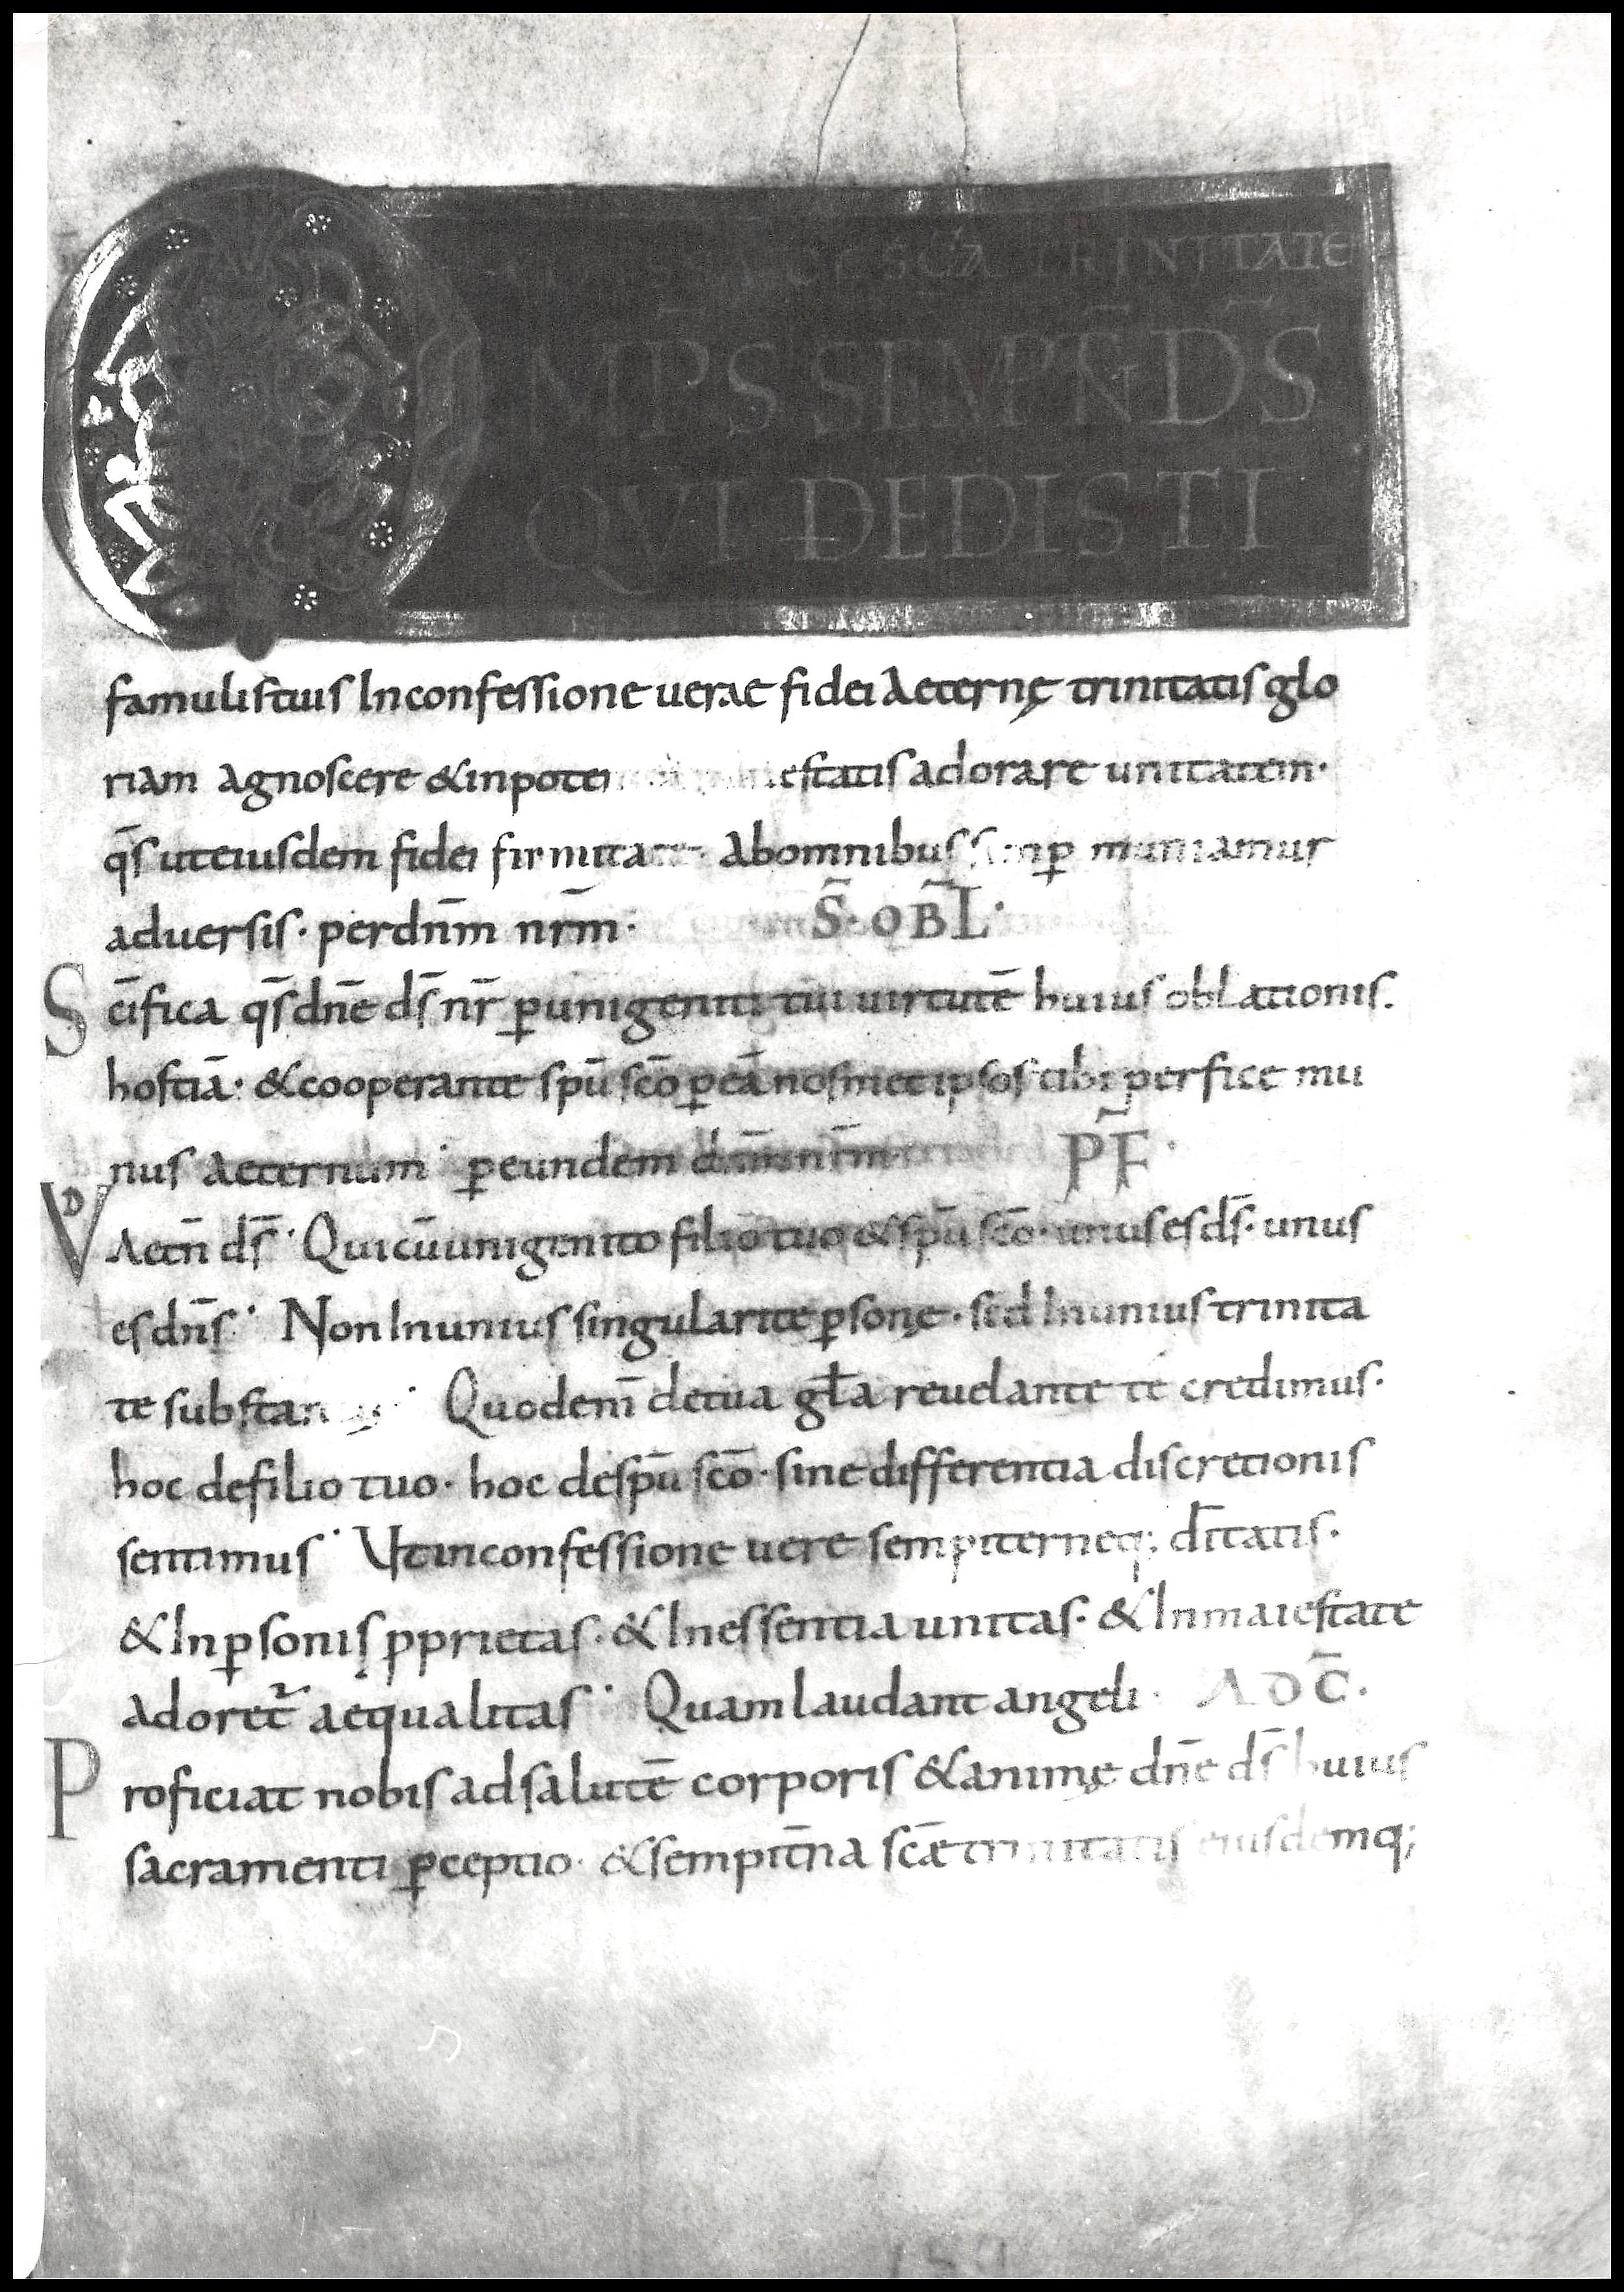 SCA TRINITATE
OMPS SEMP̄ N̄ DS̄
QVI DEDISTI
famulis tuis In confessione uerae fidei Aeternę trinitatis glo
riam agnoscere & in adorare unitatem·
q̄s ut eiusdem fidei firmitate· Ab omnibus semp̲ muniamur
aduersis· per dn̄m nr̄m· S̄· OBL̄·
Sc̄ifica q̄s dn̄e ds̄ nr̄ p̲ unigeniti tui uirtutē huius oblationis.
hostiā· & cooperante spū sc̄o p̲ eā nosmet ipsos tibi perfice mu
nus Aeternum· p̲ eundem dn̄m nr̄m PF̄·
VD Aetn̄ ds̄· Qui cū unigenito filio tuo & spū sc̄o· unus es ds̄· unus
es dn̄s· Non In unius singularite p̲sonę· sed In unius trinita
te Quod eni̅ de tua gl̄a reuelante te credimus·
hoc de filio tuo· hoc de spū sc̄o· sine differentia discretionis
sentimus· Ut in confessione uere sempiterneq; d̄itatis·
& In p̲sonis pprietas· & In essentia unitas· & In maiestate
Adoret̄ aequalitas· Quam laudant angeli· AD C̄·
Proficiat nobis ad salutē corporis & animę dn̄e ds̄ huius
sacramenti p̲ceptio· & sempit̄na scæ trinitatis eiusdemq;